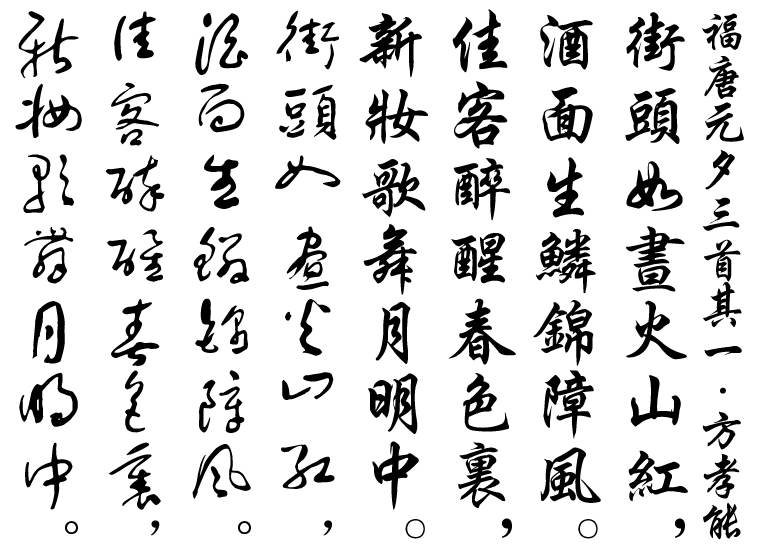 福唐元夕三首其一·方孝能
街頭如畫火山紅，
酒面生鱗錦障風。
佳客醉醒春色裏，
新妝歌舞月明中。
街頭如晝火山紅，
酒面生鱗錦障風。
佳客醉醒春色裏，
新妝歌舞月明中。